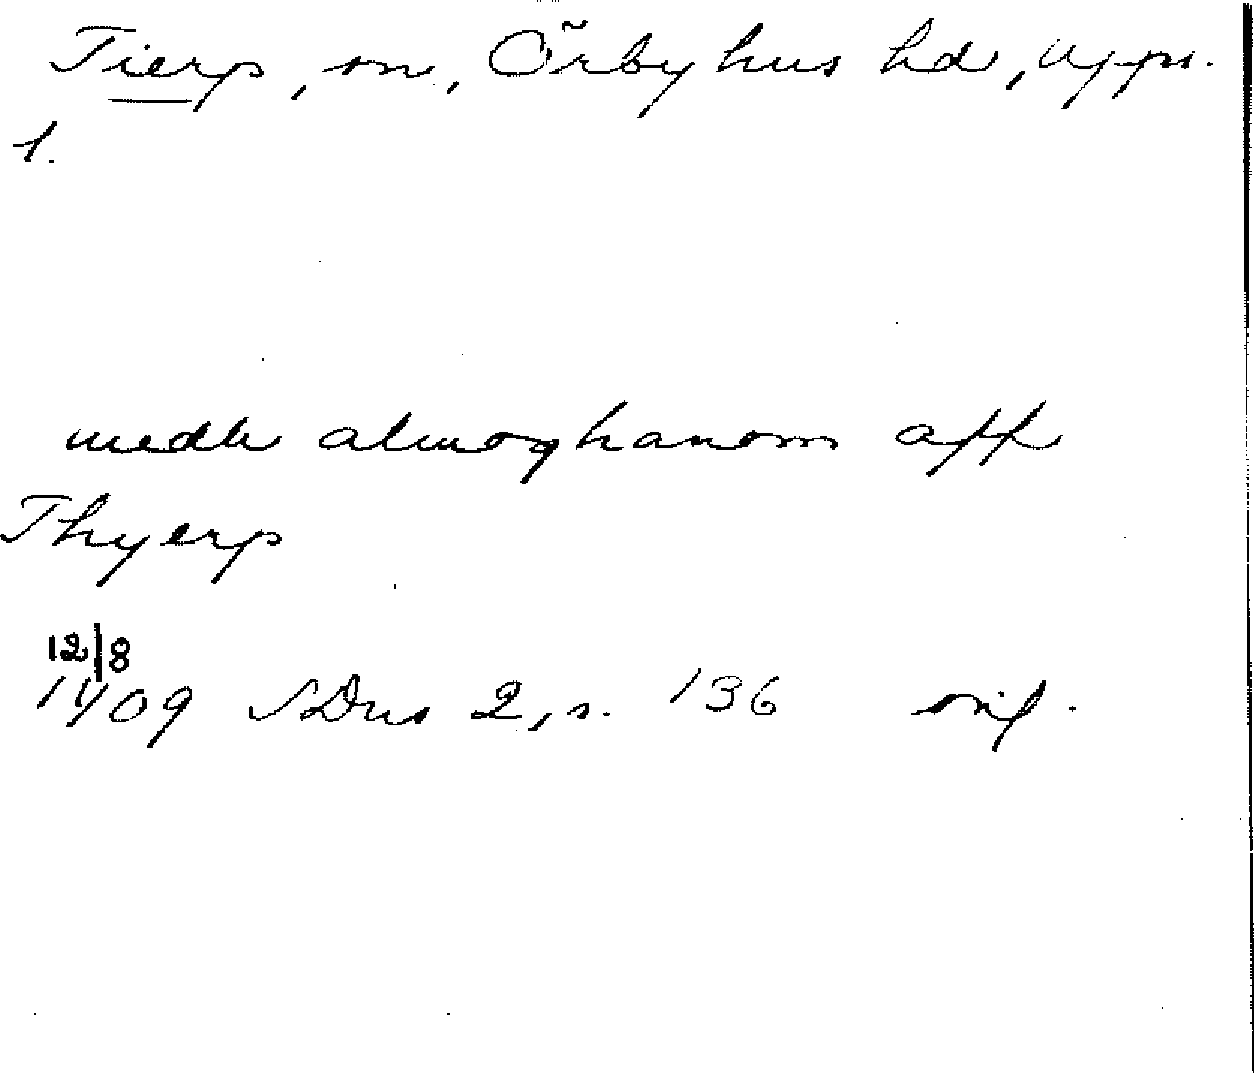 Tierp, sn, Örbyhus hd, Upps.
l.
medh almoghanom aff
Thyerp
12/8
1409 SDns 2, s. 136 orig.